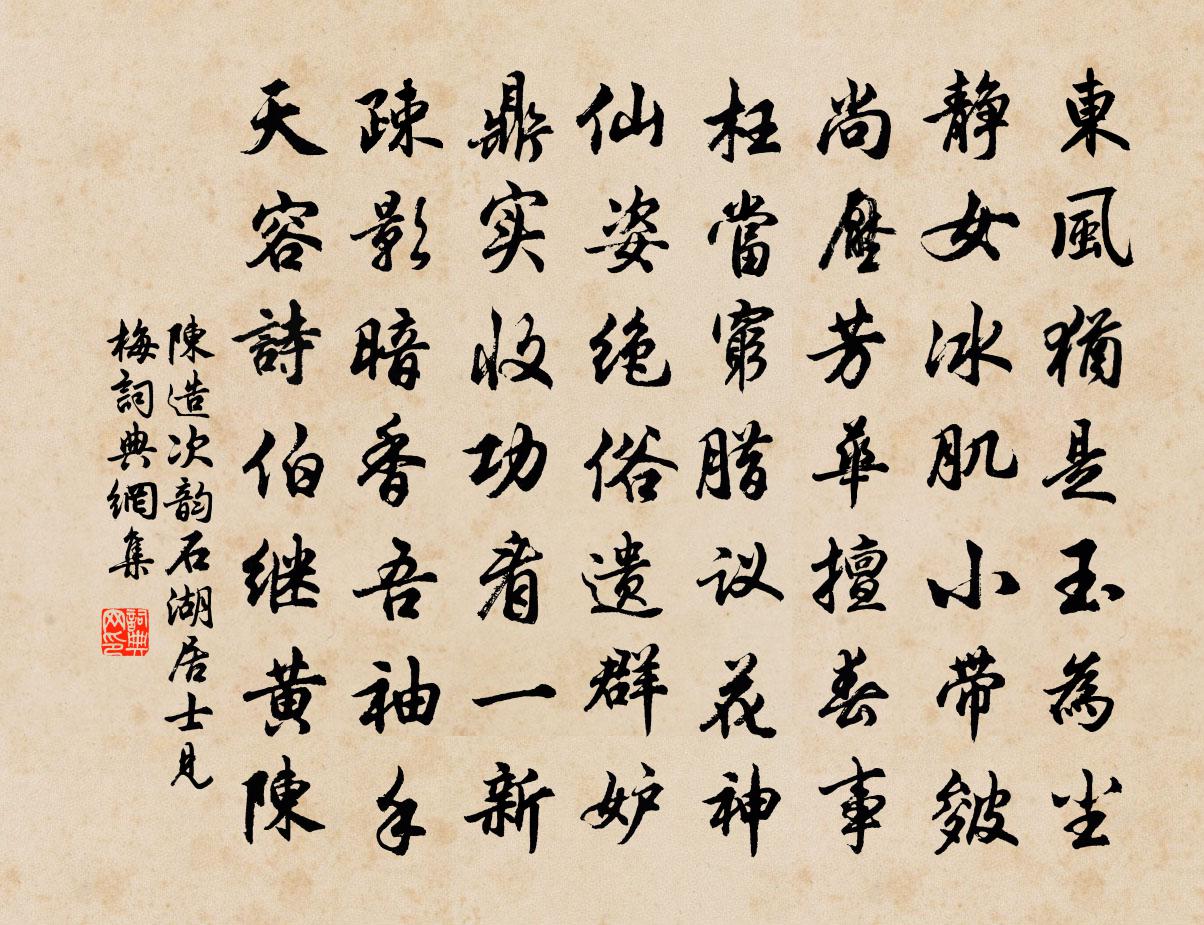 東風猶是玉為尘
静女冰肌小带皴
尚壓芳華擅春事
枉當窮腊议花神
仙姿绝俗遗群妒
鼎实收功看一新
疎影暗香吾袖手
天容詩伯继黄陳
陳造次韵石湖居士見
梅詞典網集
詞典
网印